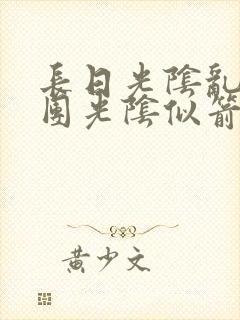 長日光陰亂
團光陰似箭
黃少文